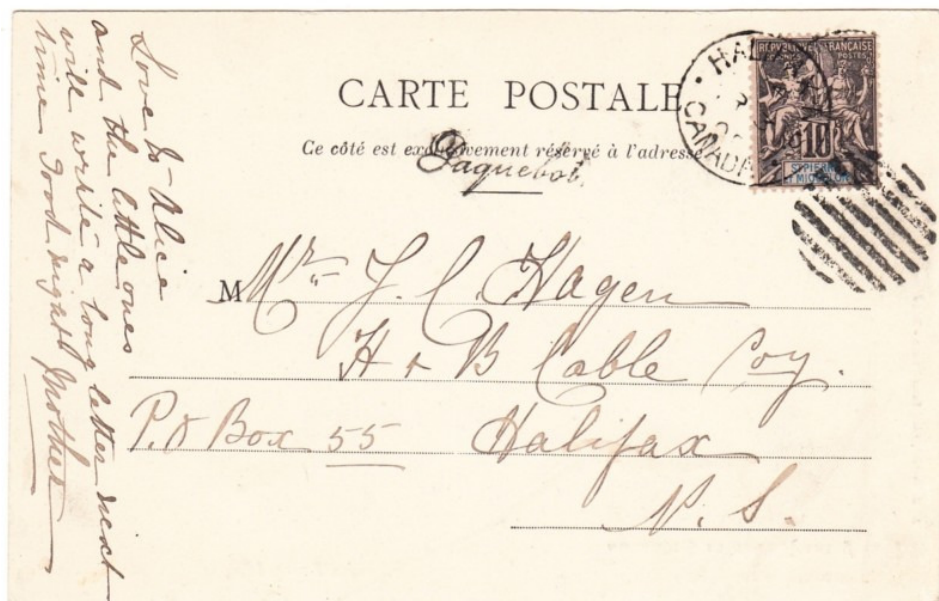 Love to Alice
and the little ones
will write a long letter next
time Good night Mother
CARTE POSTALE
Ce côté est exclusivement réservé à l'adresse
Paquebot
REPUBLIQUE FRANÇAISE
POSTES
10
ST PIERRE
ET MIQUELON
HALIFAX
CANADA
M Mr. J. C. Hagen
H & B Cable Coy.
P.O Box 55 Halifax
N. S.